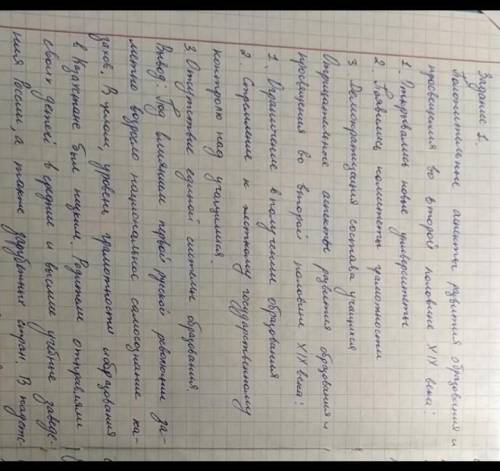 Задание 1.
Положительные аспекты развития образования и
просвещения во второй половине XIX века:
1. Открывались новые университеты
2. Появились комитеты грамотности
3 Демократизация состава учащихся
Отрицательные аспекты развития образования и
просвещения во второй половине XIX века:
1. Ограничение в получении образования
2. Стремление к жесткому государственному
контролю над учащимися.
3. Отсутствие единой системы образования
Вывод: Под влиянием первой русской революции за-
метно возросло национальное самосознание ка-
захов. В целом, уровень грамотности и образования
в Казахстане был низким. Родители отправляли
своих детей в средние и высшие учебные заведе-
ния России, а также зарубежных стран. В